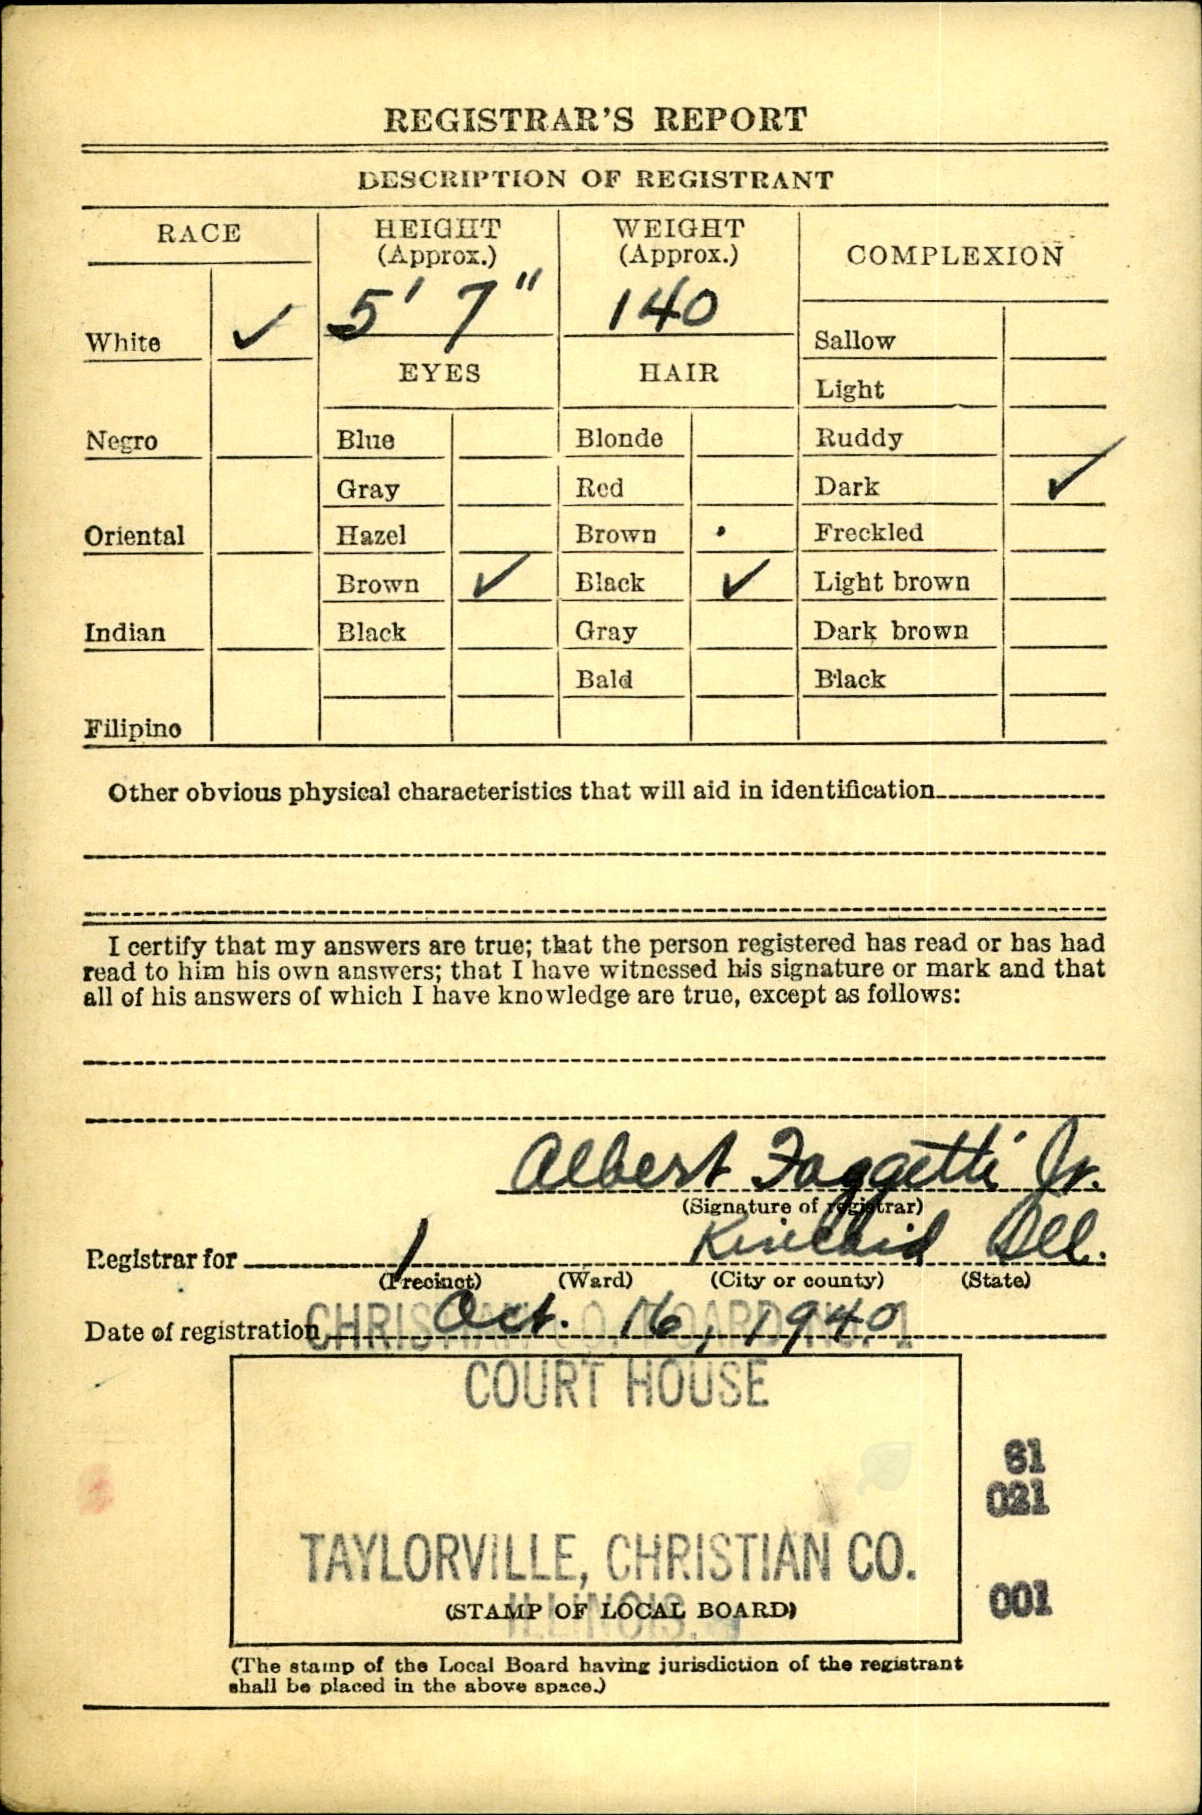 REGISTRAR'S REPORT
DESCRIPTION OF REGISTRANT
RACE
HEIGHT (Approx.)
WEIGHT (Approx.)
COMPLEXION
5' 7"
140
White ✓
EYES
HAIR
Sallow
Light
Negro
Blue
Blonde
Ruddy
Gray
Red
Dark ✓
Oriental
Hazel
Brown
Freckled
Brown ✓
Black ✓
Light brown
Indian
Black
Gray
Dark brown
Bald
Black
Filipino
Other obvious physical characteristics that will aid in identification
I certify that my answers are true; that the person registered has read or has had
read to him his own answers; that I have witnessed his signature or mark and that
all of his answers of which I have knowledge are true, except as follows:
Albert Faggetti Jr.
(Signature of registrar)
Registrar for 1 Kincaid Ill.
(Precinct) (Ward) (City or county) (State)
Date of registration Oct. 16, 1940
CHRISTIAN CO. BOARD NO. 1
COURT HOUSE
61
021
TAYLORVILLE, CHRISTIAN CO.
001
ILLINOIS.
(STAMP OF LOCAL BOARD)
(The stamp of the Local Board having jurisdiction of the registrant
shall be placed in the above space.)